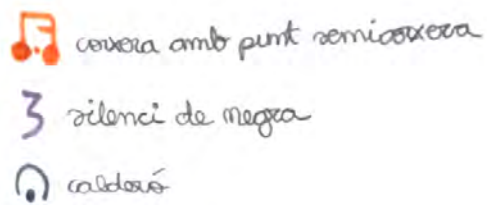 corxera amb punt semicorxera
silenci de negra
calderó